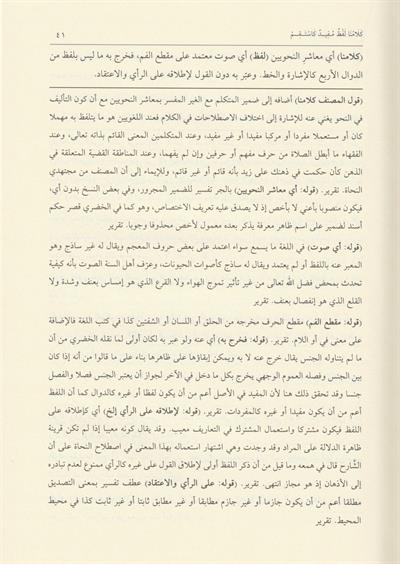 كَلَامُنَا لَفْظٌ مُفِيدٌ كَاسْتَقِمْ
٤١
(كلامنا) أي معاشر النحويين (لفظ) أي صوت معتمد على مقطع الفم، فخرج به ما ليس بلفظ من
الدوال الأربع كالإشارة والخط. وعبّر به دون القول لإطلاقه على الرأي والاعتقاد.
(قول المصنف كلامنا) أضافه إلى ضمير المتكلم مع الغير المفسر بمعاشر النحويين مع أن كون التأليف
في النحو يغني عنه للإشارة إلى اختلاف الاصطلاحات في الكلام فعند اللغويين هو ما يتلفظ به مهملا
كان أو مستعملا مفردا أو مركبا مفيدا أو غير مفيد، وعند المتكلمين المعنى القائم بذاته تعالى، وعند
الفقهاء ما أبطل الصلاة من حرف مفهم أو حرفين وإن لم يفهما، وعند المناطقة القضية المتعلقة في
الذهن كأن حكمت في ذهنك على زيد بأنه قائم أو غير قائم، وللإيماء إلى أن المصنف من مجتهدي
النحاة. تقرير. (قوله: أي معاشر النحويين) بالجر تفسير للضمير المجرور، وفي بعض النسخ بدون أي،
فيكون منصوبا بأعني لا بأخص إذ لا يصدق عليه تعريف الاختصاص، وهو كما في الخضري قصر حكم
أسند لضمير على اسم ظاهر معرفة يذكر بعده معمول لأخص محذوفا وجوبا. تقرير
(قوله: أي صوت) في اللغة ما يسمع سواء اعتمد على بعض حروف المعجم ويقال له غير ساذج وهو
المعبر عنه باللفظ أو لم يعتمد ويقال له ساذج كأصوات الحيونات، وعزف أهل السنة الصوت بأنه كيفية
تحدث بمحض فضل الله تعالى من غير تأثير تموج الهواء ولا القرع الذي هو إمساس بعنف وشدة ولا
القلع الذي هو إنفصال بعنف. تقرير
(قوله: مقطع الفم) مقطع الحرف مخرجه من الحلق أو اللسان أو الشفتين كذا في كتب اللغة فالإضافة
على معنى في أو اللام. تقرير. (قوله: فخرج به) أي عنه ولو عبر به لكان أولى لما نقله الخضري من أن
ما لم يتناوله الجنس يقال خرج عنه لا به ويمكن إبقاؤها على ظاهرها بناء على ما قالوا من أنه إذا كان
بين الجنس وفصله العموم الوجهي يخرج بكل ما دخل في الآخر لجواز أن يعتبر الجنس فصلا والفصل
جنسا وقد تحقق ذلك هنا لأن المفيد في الأصل أعم من أن يكون لفظا أو غيره كالدوال كما أن اللفظ
أعم من أن يكون مفيدا أو غيره كالمفردات. تقرير. (قوله: لإطلاقه على الرأي إلخ) أي كإطلاقه على
اللفظ فيكون مشتركا واستعمال المشترك في التعاريف معيب. وقد يقال كونه معيبا إذا لم تكن قرينة
ظاهرة الدلالة على المراد وقد وجدت وهي اشتهار استعماله بهذا المعنى في اصطلاح النحاة على أن
الشارح قال في همعه وما قيل من أن ذكر اللفظ أولى لإطلاق القول على غيره كالرأي ممنوع لعدم تبادره
إلى الأذهان إذ هو مجاز انتهى. تقرير. (قوله: على الرأي والاعتقاد) عطف تفسير بمعنى التصديق
مطلقا أعم من أن يكون جازما أو غير جازم مطابقا أو غير مطابق ثابتا أو غير ثابت كذا في محيط
المحيط. تقرير